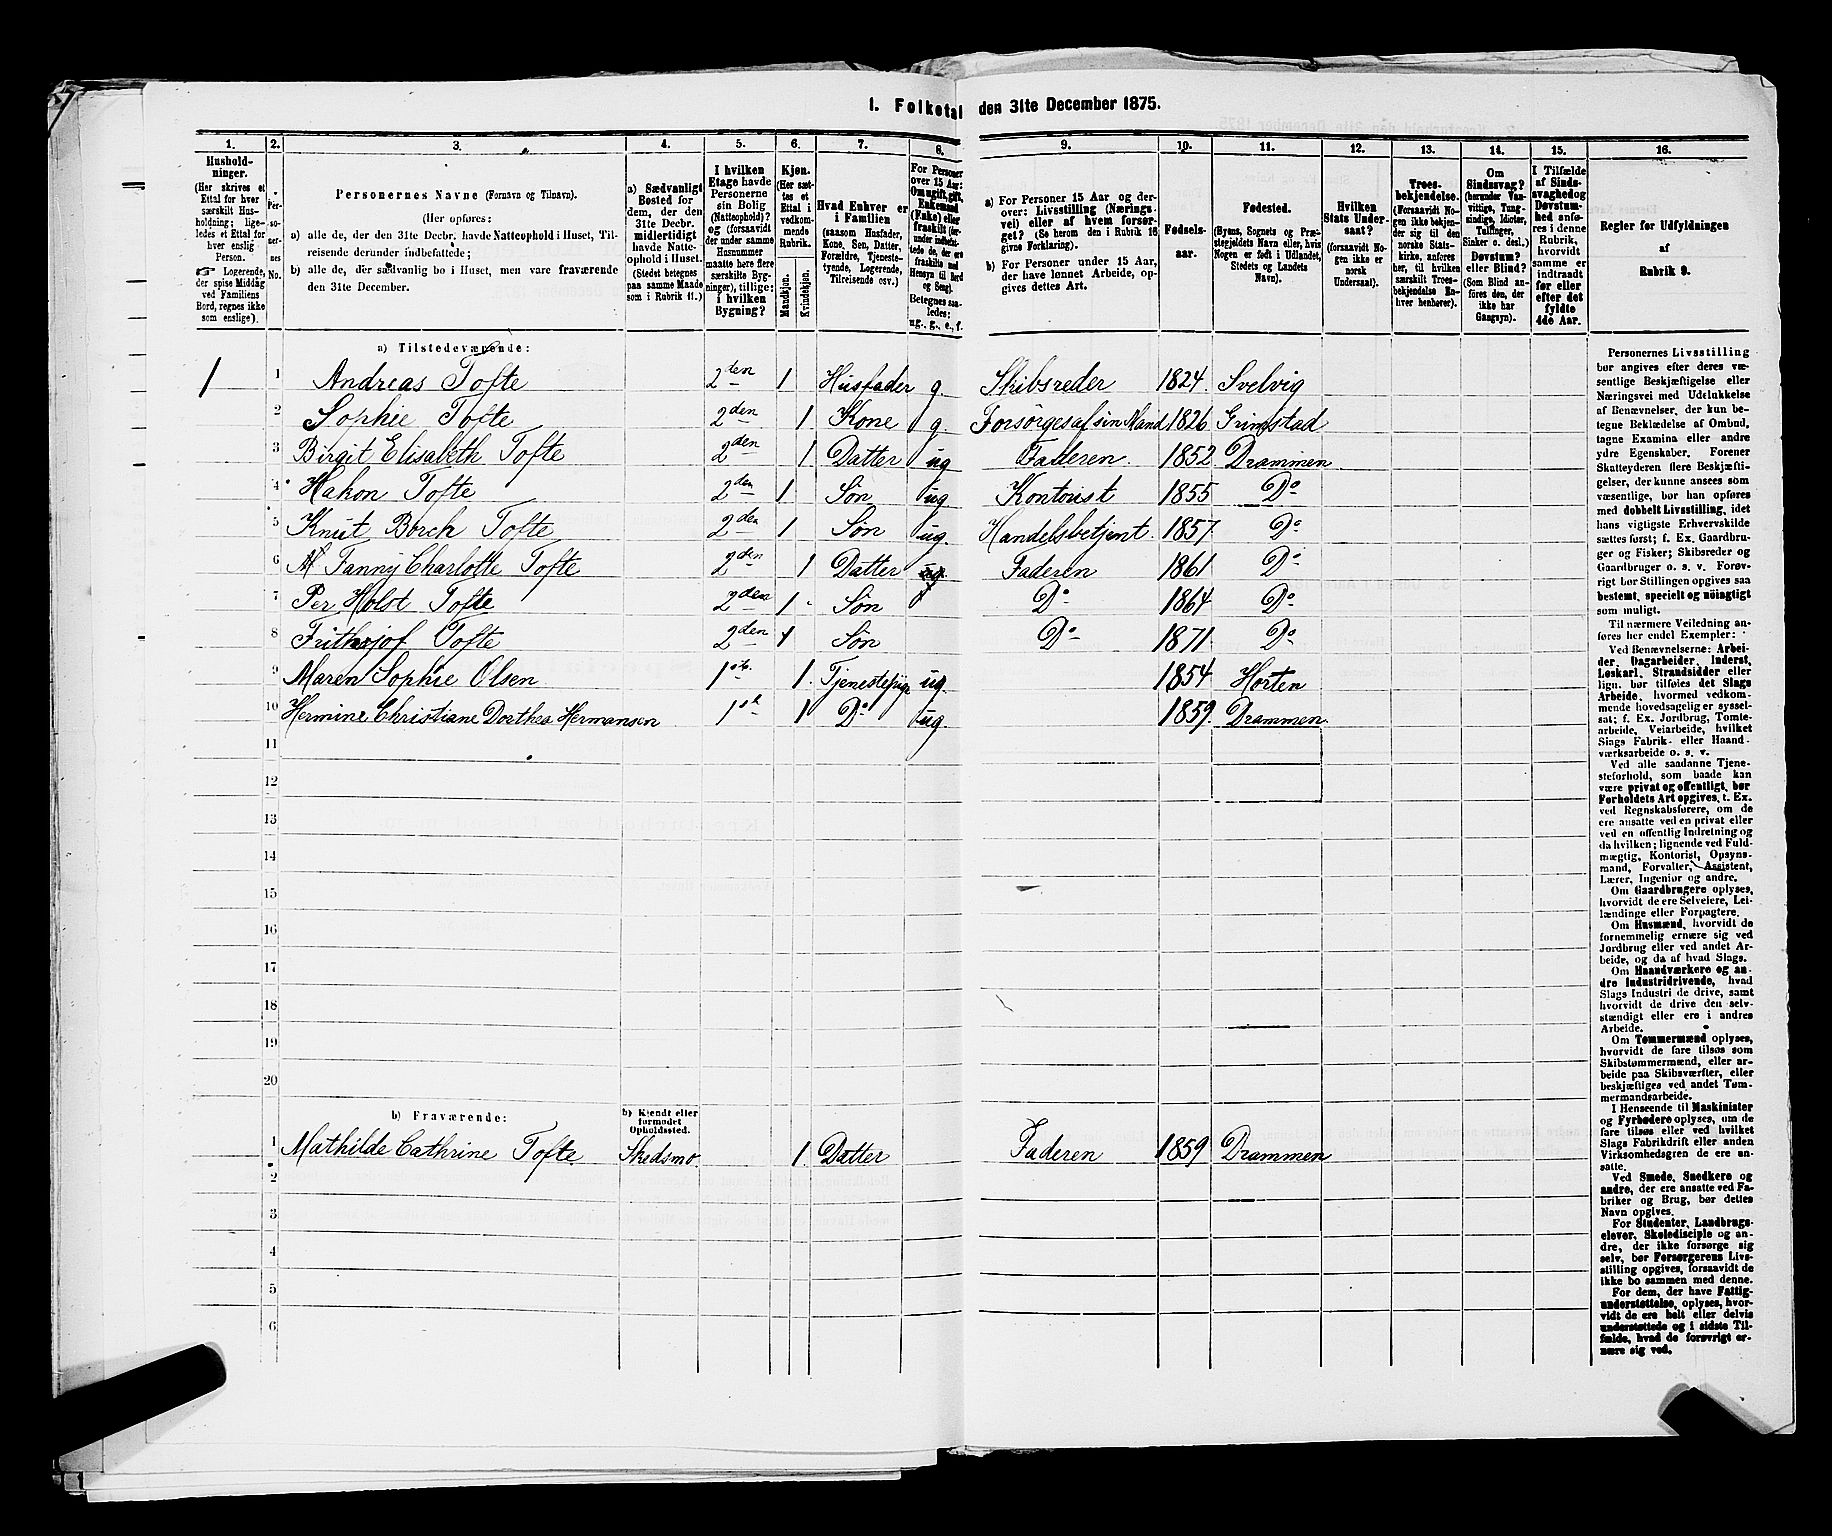 1. Folketal den 31te December 1875.
1. 2. 3. 4. 5. 6. 7. 8. 9. 10. 11. 12. 13. 14. 15. 16.
Husholdninger.
(Her skrives et
Ettal for hver
særskilt Husholdning; ligeledes et Ettal for
hver enslig
Person.
Logerende,
der spise Middag
ved Familiens
Bord, regnes ikke
som enslige).
Personernes No.
Personernes Navne (Fornavn og Tilnavn).
(Her opføres:
a) alle de, der den 31te Decbr. havde Natteophold i Huset, Tilreisende derunder indbefattede;
b) alle de, der sædvanlig bo i Huset, men vare fraværende
den 31te December.
a) Sædvanligt
Bosted for
dem, der den
31te Decbr.
midlertidigt
havde Natteophold i Huset.
(Stedet betegnes
paa samme Maade
som i Rubrik 11.)
I hvilken
Etage havde
Personerne
sin Bolig
(Natteophold)?
og (forsaavidt
der under samme
Husnummer
maatte høre flere
særskilte Bygninger), tillige:
i hvilken
Bygning?
Kjøn.
(Her sættes et
Ettal i
vedkommende
Rubrik.
Mandkjøn.
Kvindekjøn.
Hvad Enhver er
i Familien
(saasom Husfader,
Kone, Søn, Datter,
Forældre, Tjenestetyende, Logerende,
Tilreisende osv.)
For Personer
over 15 Aar:
Om ugift, gift,
Enkemand
(Enke) eller
fraskilt
Betegnes saaledes:
ug., g., e., f.
a) For Personer 15 Aar og derover: Livsstilling (Næringsvei) eller af hvem forsørget? (Se herom den i Rubrik 16
givne Forklaring).
b) For Personer under 15 Aar,
der have lønnet Arbeide, opgives dettes Art.
Fødselsaar.
Fødested.
(Byens, Sognets og Præstegjeldets Navn eller, hvis
Nogen er født i Udlandet,
Stedets og Landets
Navn).
Hvilken
Stats Undersaat?
(forsaavidt Nogen ikke er
norsk
Undersaat).
Troesbekjendelse.
(Forsaavidt Nogen ikke bekjender sig til den
norske Statskirke, anføres
her, til hvilken
særskilt Troesbekjendelse Enhver henhører).
Om
Sindssvag?
(herunder Vanvittige, Tungsindige, Idioter,
Tullinger,
Sinker o. desl.)
Døvstum?
eller Blind?
(Som Blind anføres den, der
ikke har
Gangsyn).
I Tilfælde
af Sindssvaghed og
Døvstumhed anføres i denne
Rubrik,
hvorvidt
samme er
indtraadt
før eller
efter det
fyldte
4de Aar.
Regler for Udfyldningen
af
Rubrik 9.
a) Tilstedeværende:
1 1 Andreas Tofte 2den 1 Husfader g. Skibsreder 1824. Svelvig
2 Sophie Tofte 2den 1 Kone g. Forsørges af sin Mand 1826 Grimstad
3 Birgit Elisabeth Tofte 2den 1 Datter ug Faderen. 1852 Drammen
4 Hakon Tofte 2den 1 Søn ug Kontorist 1855 Do
5 Knut Borch Tofte 2den 1 Søn ug. Handelsbetjent. 1857. Do
6 M Fanny Charlotte Tofte 2den 1 Datter ug. Faderen 1861 Do
7 Per Holst Tofte 2den 1 Søn Do 1864 Do
8 Frithjof Tofte 2den 1 Søn Do 1871. Do
9 Maren Sophie Olsen 1ste 1. Tjenestepige ug. 1854 Horten
10 Hermine Christiane Dorthea Hermansen 1ste 1 Do ug 1859. Drammen.
11
12
13
14
15
16
17
18
19
20
b) Fraværende:
b) Kjendt eller
formodet
Opholdssted.
1 Mathilde Cathrine Tofte. Skedsmo 1. Datter Faderen 1859 Drammen
2
3
4
5
6
Personernes Livsstilling
bør angives efter deres væsentlige Beskjæftigelse eller
Næringsvei med Udelukkelse
af Benævnelser, der kun betegne Beklædelse af Ombud,
tagne Examina eller andre
ydre Egenskaber. Forener
Skatteyderen flere Beskjæftigelser, der kunne ansees som
væsentlige, bør han opføres
med dobbelt Livsstilling, idet
hans vigtigste Erhvervskilde
sættes først; f. Ex. Gaardbruger og Fisker; Skibsreder og
Gaardbruger o. s. v. Forøvrigt bør Stillingen opgives saa
bestemt, specielt og nøiagtigt
som muligt.
Til nærmere Veiledning anføres her endel Exempler:
Ved Benævnelserne: Arbeider, Dagarbeider, Inderst,
Løskarl, Strandsidder eller
lign. bør tilføies det Slags
Arbeide, hvormed vedkommende hovedsagelig er sysselsat; f. Ex. Jordbrug, Tomtearbeide, Veiarbeide, hvilket
Slags Fabrik- eller Haandværksarbeide o. s. v.
Ved alle saadanne Tjenesteforhold, som baade kan
være privat og offentligt, bør
Forholdets Art opgives, t. Ex.
ved Regnskabsførere, om de
ere ansatte ved en privat eller
ved en offentlig Indretning og
da hvilken; lignende ved Fuldmægtig, Kontorist, Opsynsmand, Forvalter, Assistent,
Lærer, Ingeniør og andre.
Om Gaardbrugere oplyses,
hvorvidt de ere Selveiere, Leilændinge eller Forpagtere.
Om Husmænd, hvorvidt de
fornemmelig ernære sig ved
Jordbrug eller ved andet Arbeide, og da af hvad Slags.
Om Haandværkere og andre Industridrivende, hvad
Slags Industri de drive, samt
hvorvidt de drive den selvstændigt eller ere i andres
Arbeide.
Om Tømmermænd oplyses,
hvorvidt de fare tilsøs som
Skibstømmermænd, eller arbeide paa Skibsværfter, eller
beskjæftiges ved andet Tømmermandsarbeide.
I Henseende til Maskinister
og Fyrbødere oplyses, om de
fare tilsøs eller ved hvilket
Slags Fabrikdrift eller anden
Virksomhedsgren de ere ansatte.
Ved Smede, Snedkere og
andre, der ere ansatte ved Fabriker og Brug, bør dettes
Navn opgives.
For Studenter, Landbrugselever, Skoledisciple og andre, der ikke forsørge sig
selv, bør Forsørgerens Livsstilling opgives, forsaavidt de
ikke bo sammen med denne.
For dem, der have Fattigunderstøttelse, oplyses, hvorvidt de ere helt eller delvis
understøttede og i sidste Tilfælde, hvad de forøvrigt ernære sig ved.